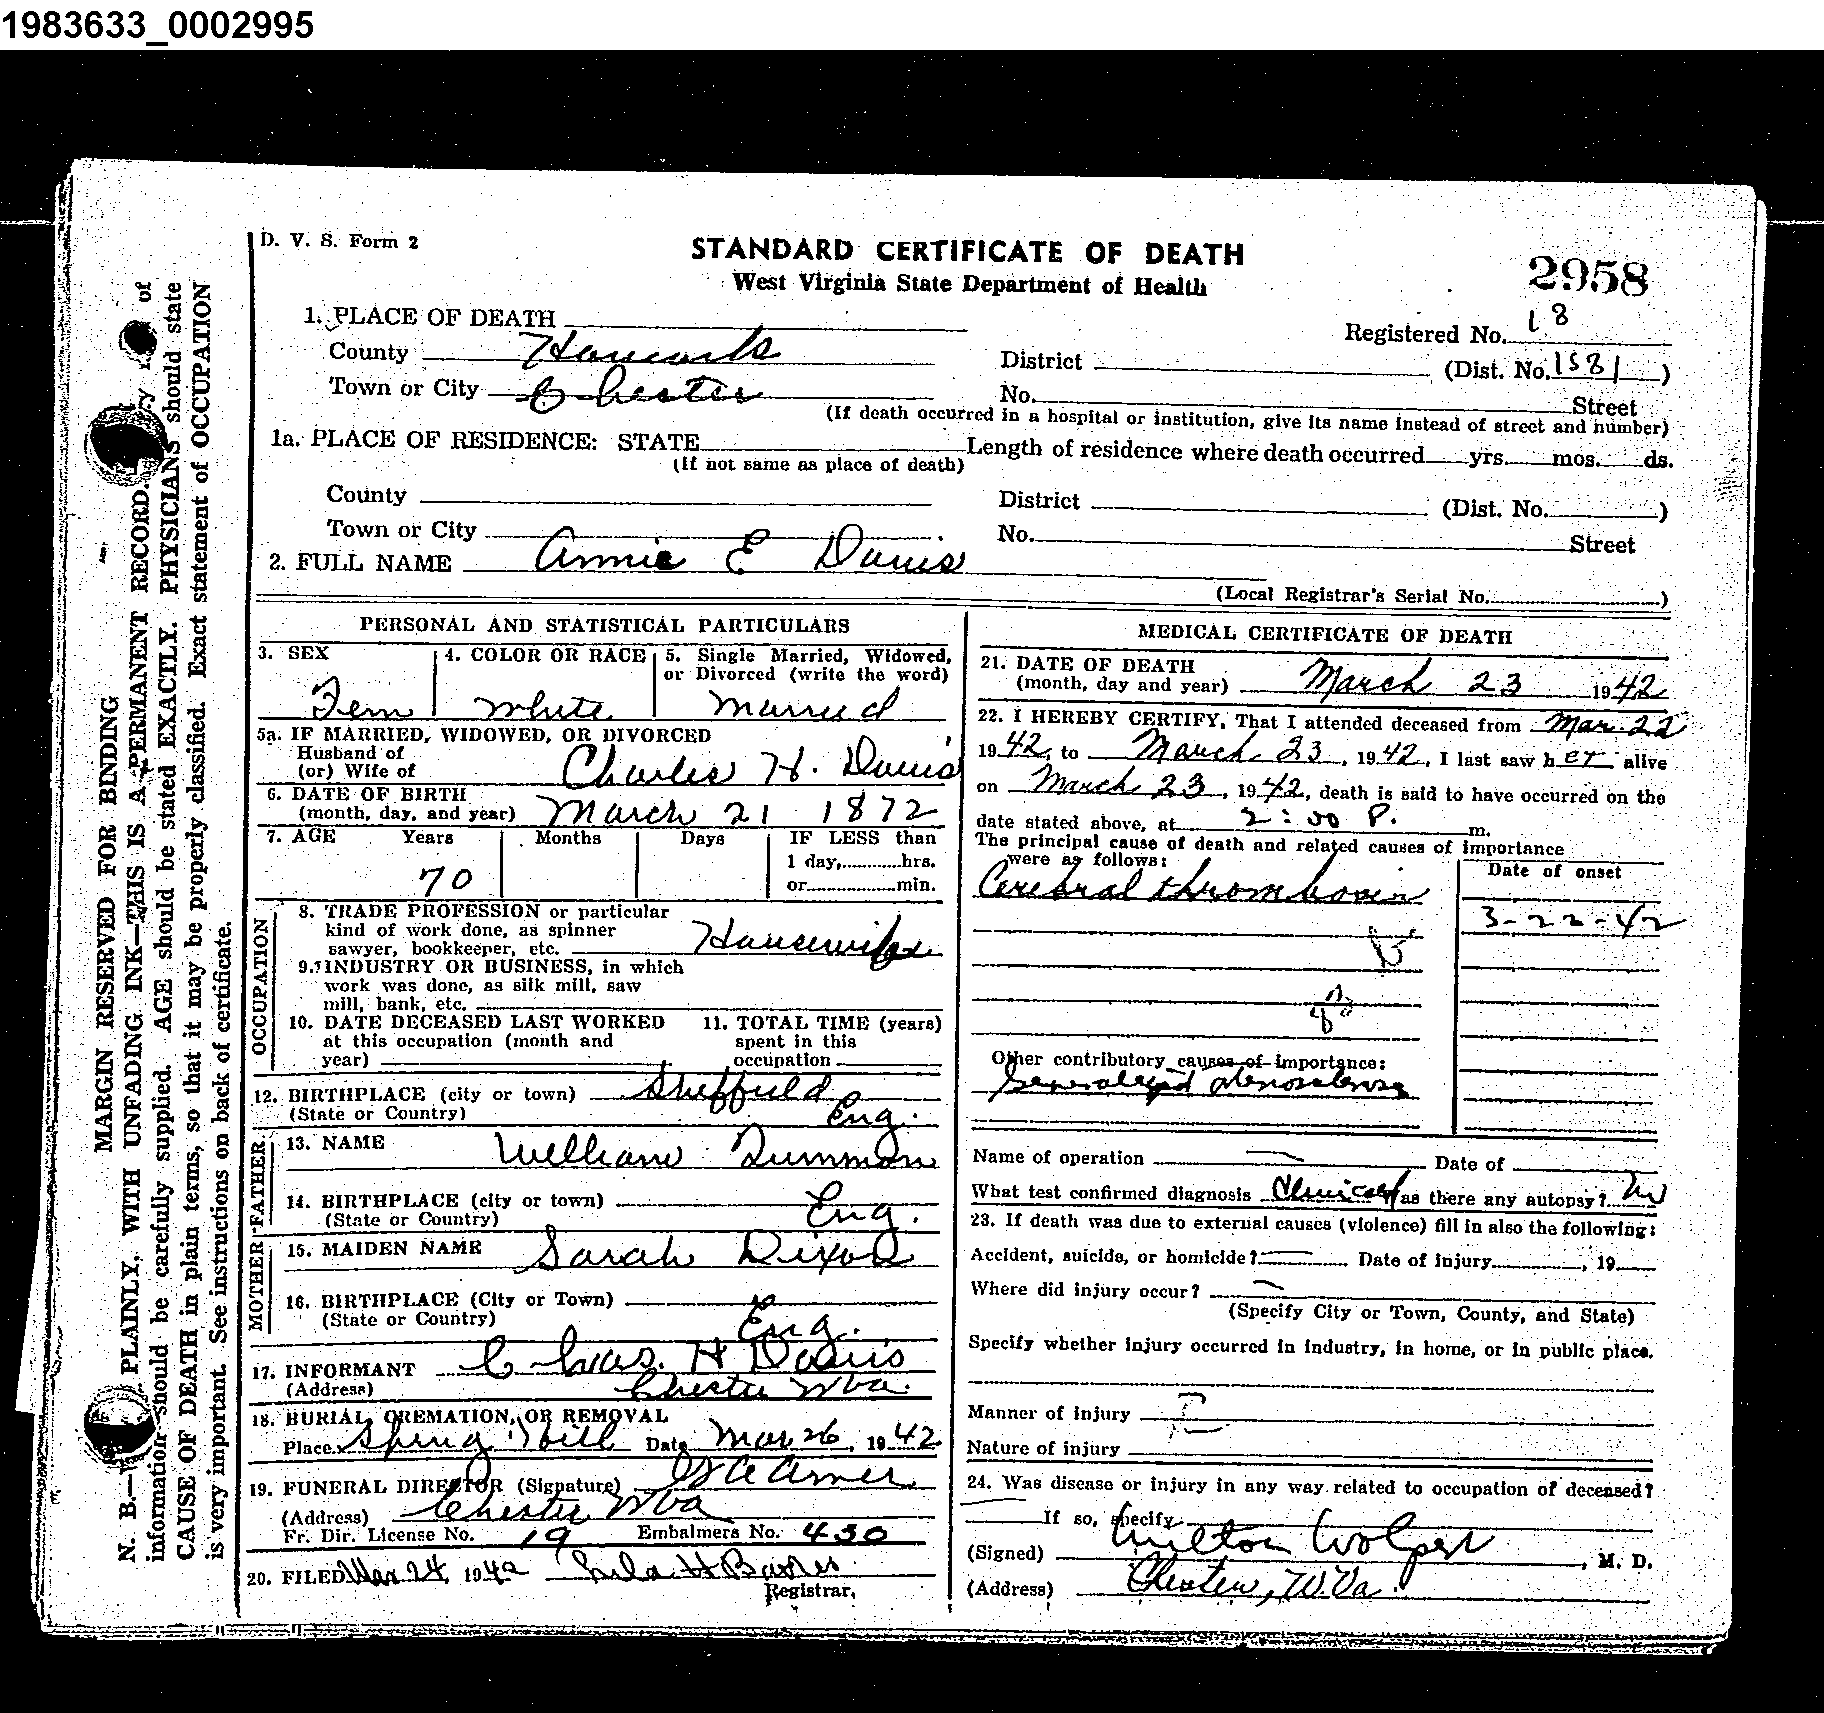 1983633_0002995
D. V. S. Form 2
STANDARD CERTIFICATE OF DEATH
West Virginia State Department of Health
2958
1. PLACE OF DEATH
Registered No. 18
County Hancock
District (Dist. No. 1581)
Town or City Chester
No. Street
(If death occurred in a hospital or institution, give its name instead of street and number)
1a. PLACE OF RESIDENCE: STATE
Length of residence where death occurred yrs. mos. ds.
(If not same as place of death)
County
District (Dist. No. )
Town or City
No. Street
2. FULL NAME Annie E Davis
(Local Registrar's Serial No. )
PERSONAL AND STATISTICAL PARTICULARS
3. SEX Fem
4. COLOR OR RACE White
5. Single Married, Widowed,
or Divorced (write the word)
Married
5a. IF MARRIED, WIDOWED, OR DIVORCED
Husband of
(or) Wife of Charles H. Davis
6. DATE OF BIRTH
(month, day, and year) March 21 1872
7. AGE Years Months Days IF LESS than
1 day, hrs.
70 or min.
OCCUPATION
8. TRADE PROFESSION or particular
kind of work done, as spinner
sawyer, bookkeeper, etc. Housewife
9. INDUSTRY OR BUSINESS, in which
work was done, as silk mill, saw
mill, bank, etc.
10. DATE DECEASED LAST WORKED
at this occupation (month and
year)
11. TOTAL TIME (years)
spent in this
occupation
12. BIRTHPLACE (city or town) Sheffield
(State or Country) Eng.
FATHER
13. NAME William
14. BIRTHPLACE (city or town)
(State or Country) Eng.
MOTHER
15. MAIDEN NAME Sarah Dixon
16. BIRTHPLACE (City or Town)
(State or Country) Eng.
17. INFORMANT Chas. H Davis
(Address) Chester Wva.
18. BURIAL, CREMATION, OR REMOVAL
Place Spring Hill Date Mar 26, 1942
19. FUNERAL DIRECTOR (Signature)
(Address) Chester Wva
Fr. Dir. License No. 19 Embalmers No. 430
20. FILED Mar 24, 1942 Lula H
Registrar.
MEDICAL CERTIFICATE OF DEATH
21. DATE OF DEATH
(month, day and year) March 23 1942
22. I HEREBY CERTIFY, That I attended deceased from Mar. 22
1942, to March 23, 1942, I last saw her alive
on March 23, 1942, death is said to have occurred on the
date stated above, at 2:00 P. m.
The principal cause of death and related causes of importance
were as follows:
Date of onset
Cerebral thrombosis
3-22-42
Other contributory causes of importance:
Generalized arteriosclerosis
Name of operation Date of
What test confirmed diagnosis Clinical Was there any autopsy? No
23. If death was due to external causes (violence) fill in also the following:
Accident, suicide, or homicide? Date of injury , 19
Where did injury occur?
(Specify City or Town, County, and State)
Specify whether injury occurred in industry, in home, or in public place.
Manner of injury
Nature of injury
24. Was disease or injury in any way related to occupation of deceased?
If so, specify
(Signed) Milton Wolper, M. D.
(Address) Chester, W.Va.
MARGIN RESERVED FOR BINDING
N. B.— PLAINLY, WITH UNFADING INK—THIS IS A PERMANENT RECORD. of
information should be carefully supplied. AGE should be stated EXACTLY. PHYSICIANS should state
CAUSE OF DEATH in plain terms, so that it may be properly classified. Exact statement of OCCUPATION
is very important. See instructions on back of certificate.